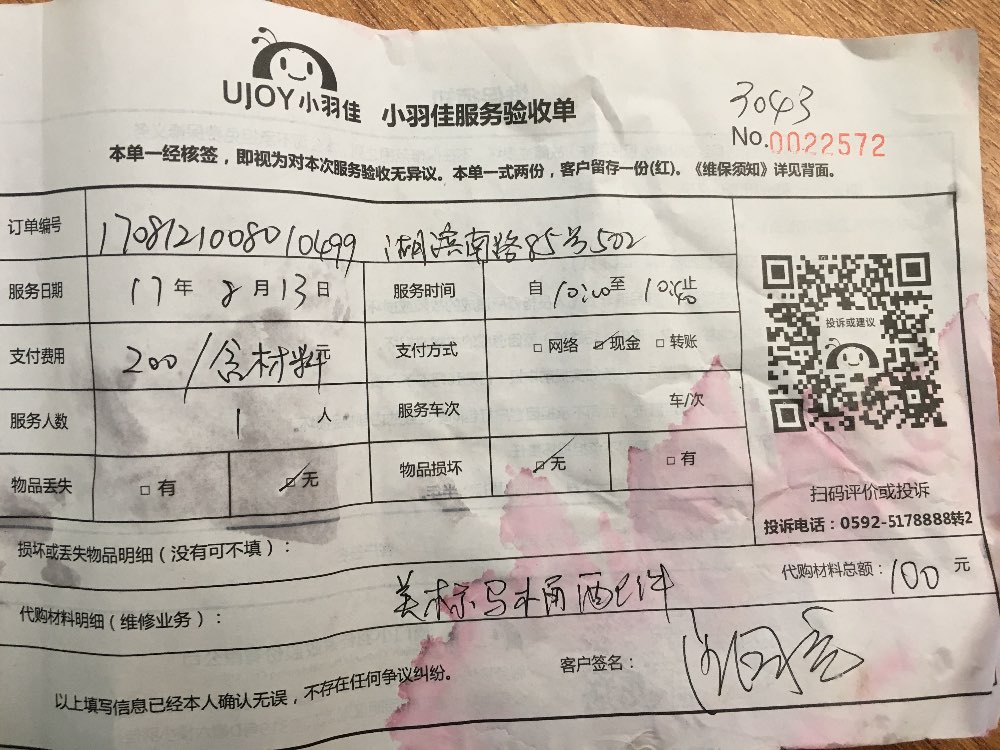 UJOY小羽佳 小羽佳服务验收单
3043
No.0022572
本单一经核签，即视为对本次服务验收无异议。本单一式两份，客户留存一份(红)。《维保须知》详见背面。
订单编号 1708121008010499 湖滨南路85号502
服务日期 17年 8月13日 服务时间 自10:00至10:40止
支付费用 200/含材料 支付方式 □网络 ☑现金 □转账
服务人数 1人 服务车次 车/次
物品丢失 □有 ☑无 物品损坏 ☑无 □有
投诉或建议
扫码评价或投诉
投诉电话：0592-5178888转2
损坏或丢失物品明细（没有可不填）：
代购材料明细（维修业务）： 美标马桶配件 代购材料总额：100元
以上填写信息已经本人确认无误，不存在任何争议纠纷。 客户签名：